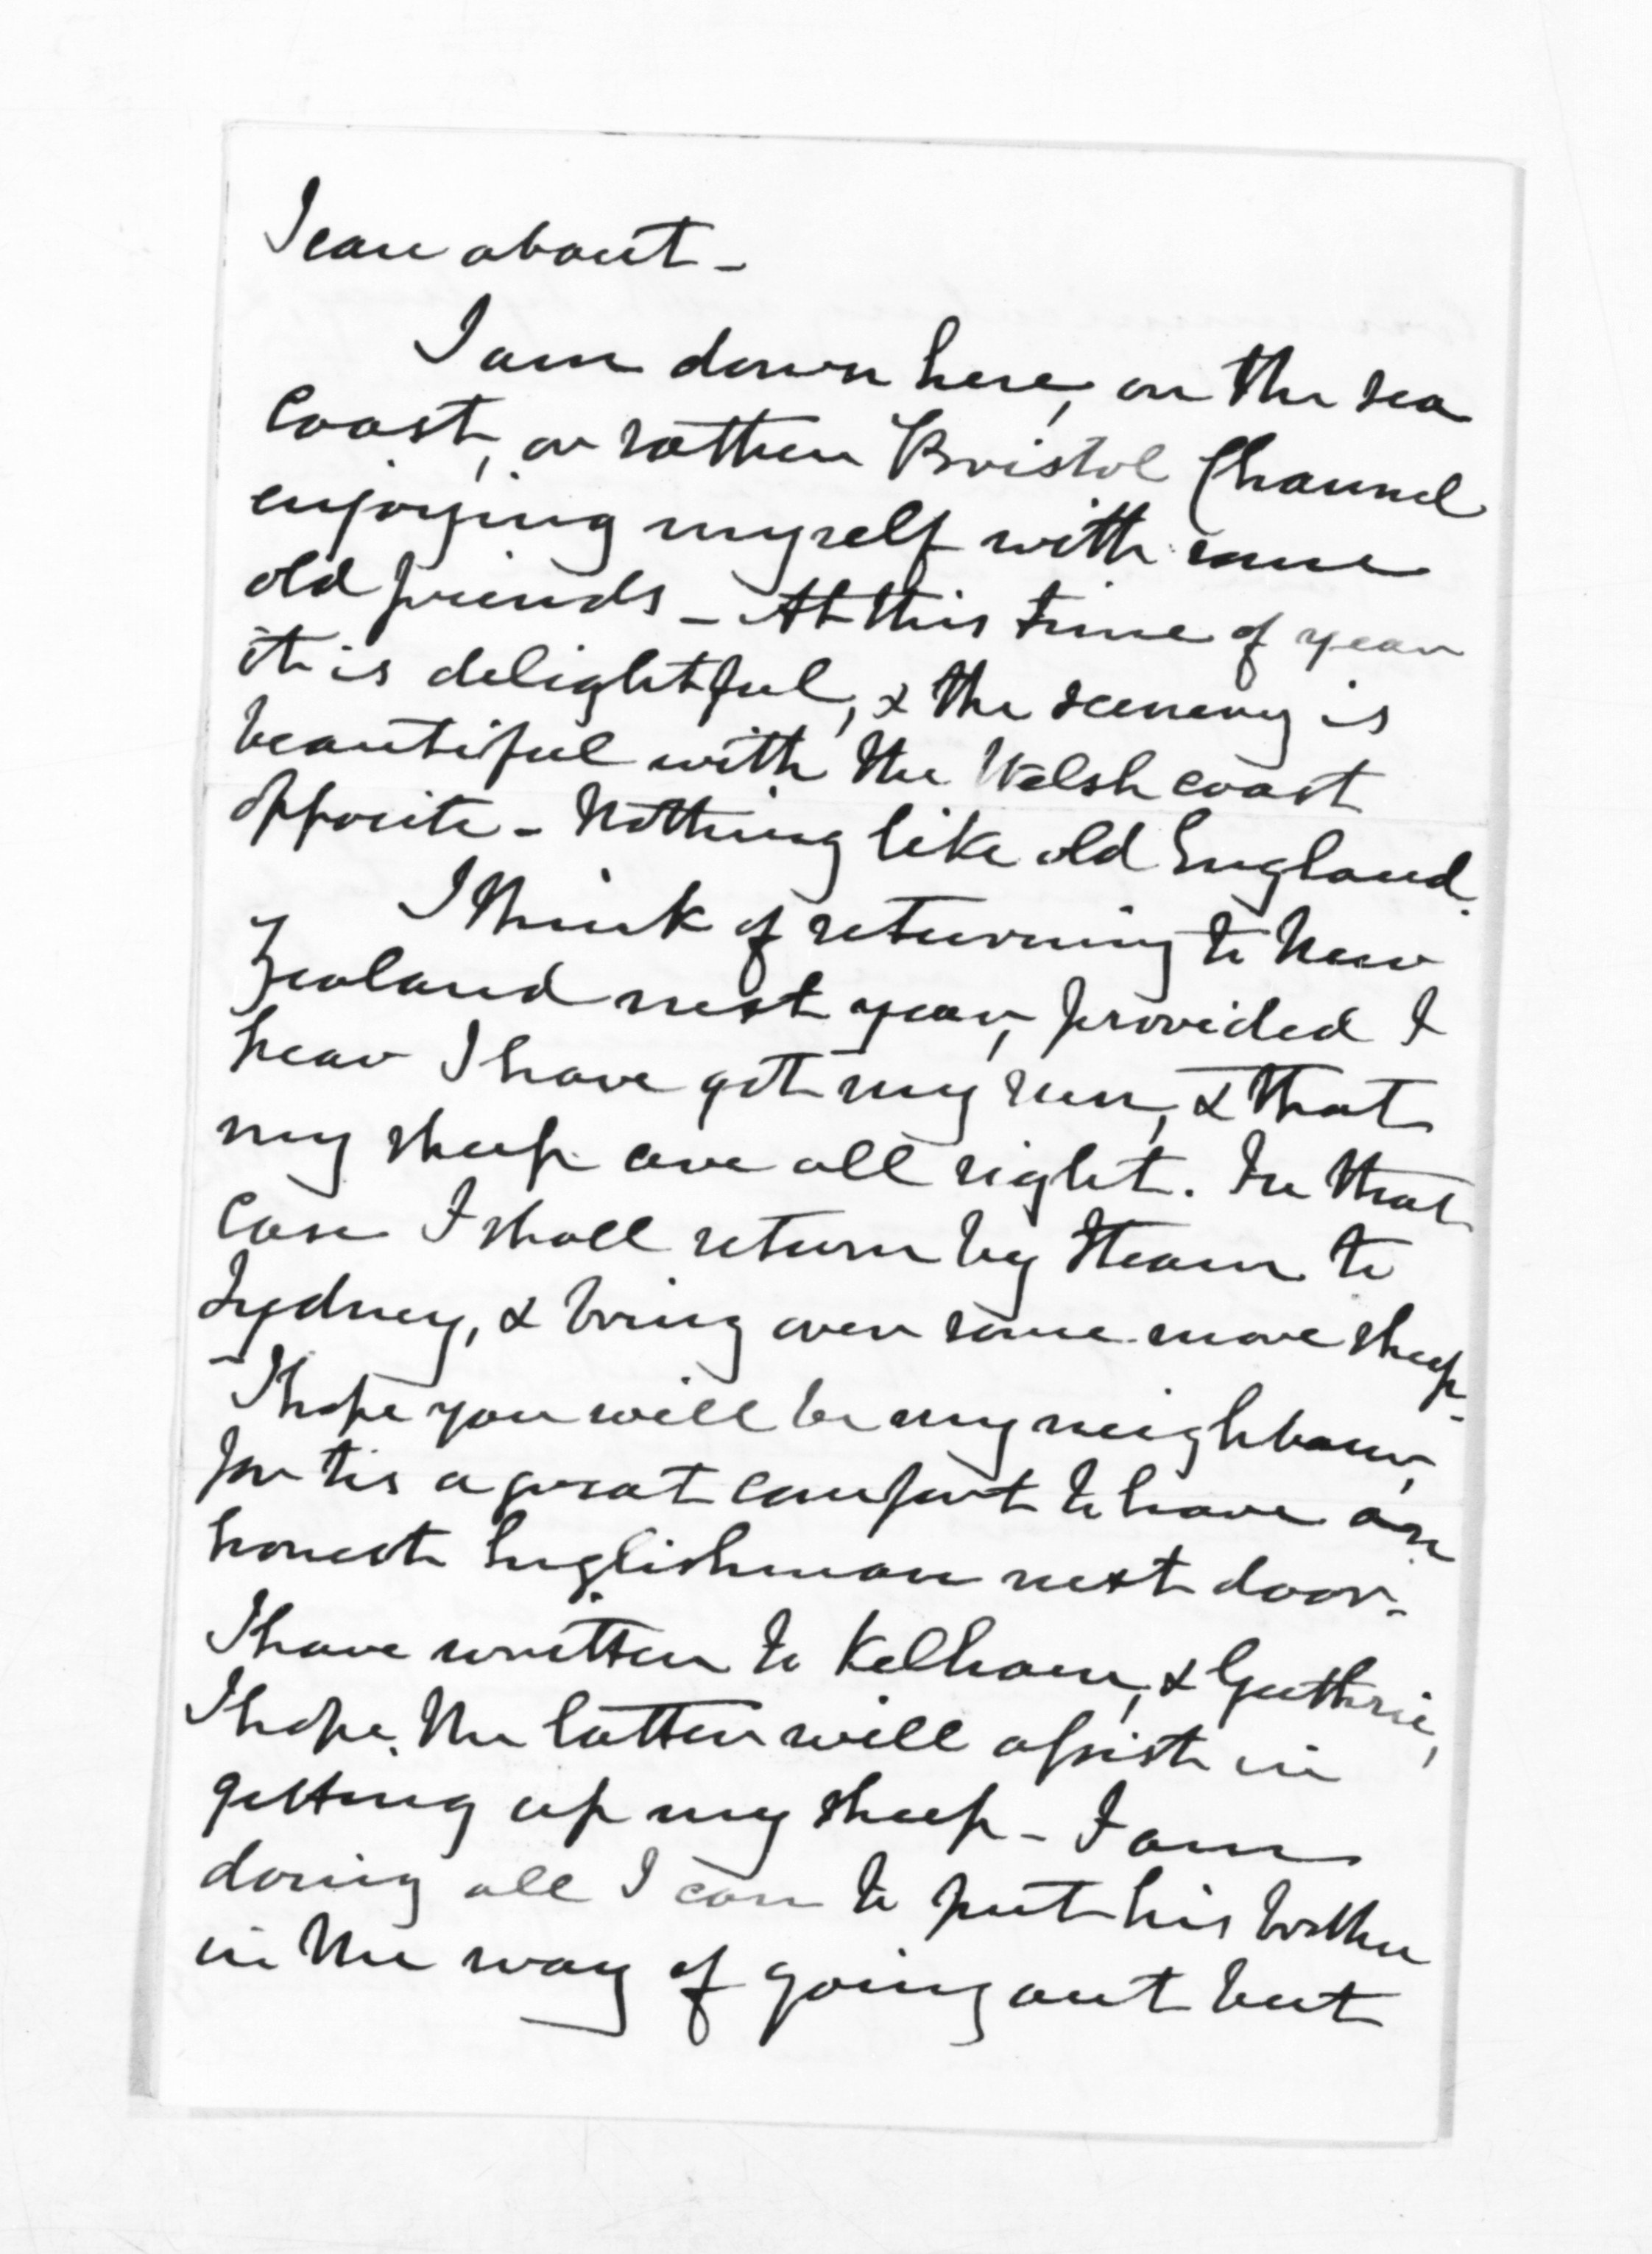 I care about -
I am down here, on the sea
coast, or rather Bristol Channel
enjoying myself with some
old friends - At this time of year
it is delightful, & the scenery is
beautiful with the Welsh coast
opposite - Nothing like old England.
I think of returning to New
Zealand next year, provided I
hear I have got my run, & that
my sheep are all right. In that
case I shall return by steam to
Sydney, & bring over some more sheep -
- I hope you will be my neighbour,
for tis a great comfort to have an
honest Englishman next door -
I have written to Kelham, & Guthrie,
I hope the latter will assist in
getting up my sheep - I am
doing all I can to put his brother
in the way of going out but